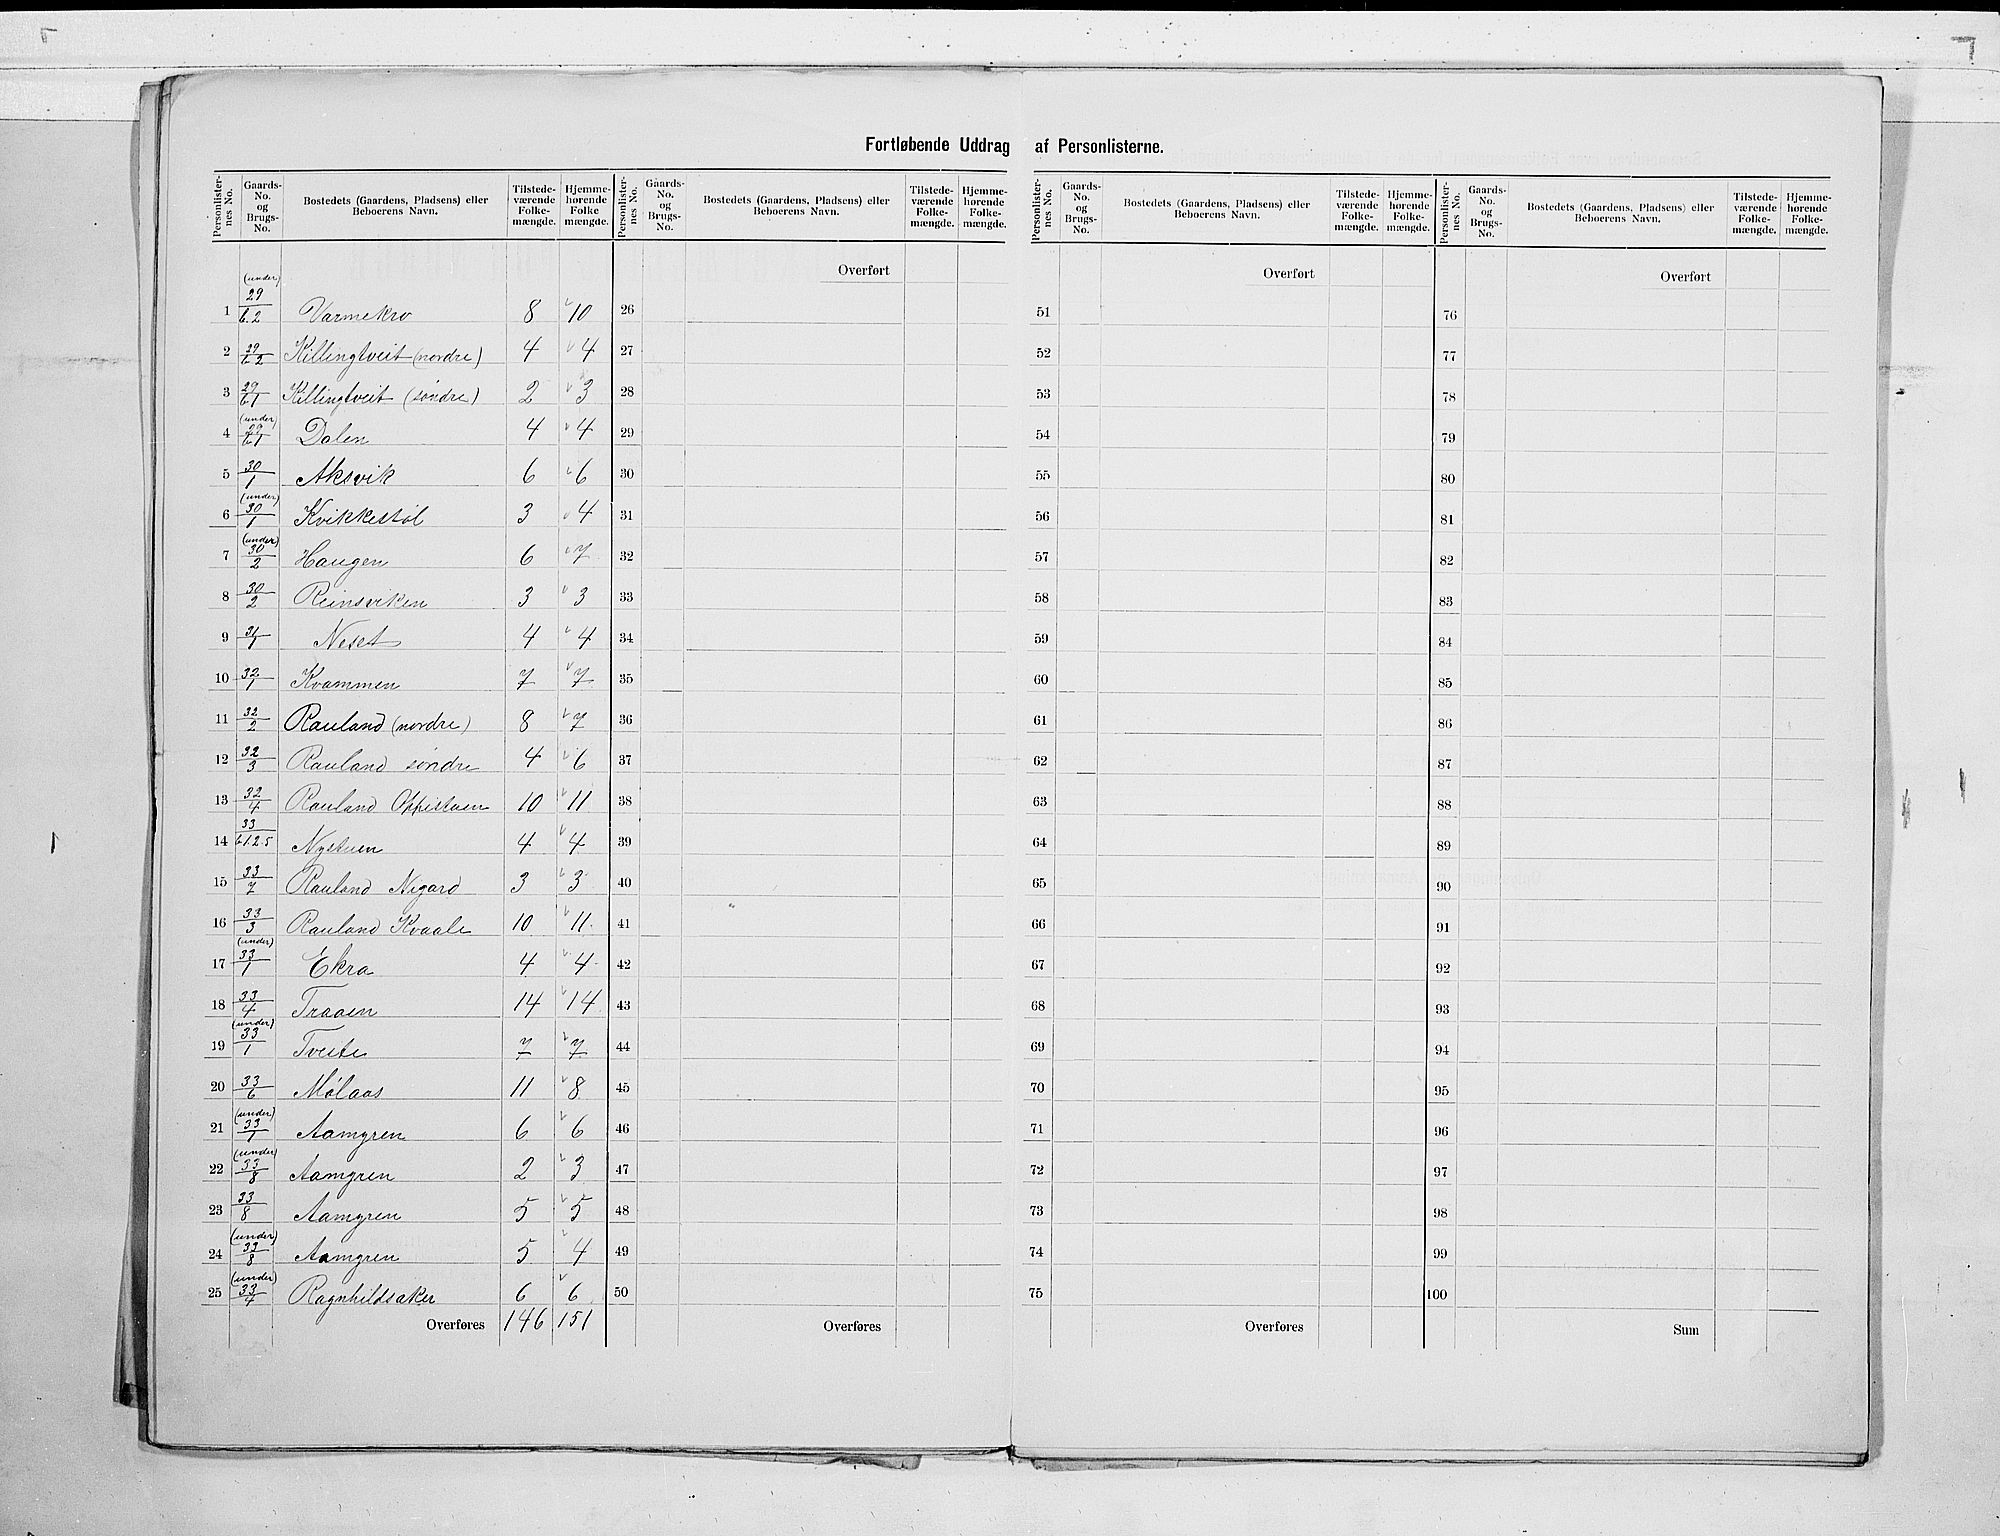 Fortløbende Uddrag af Personlisterne.
Personlister-nes No. Gaards-No. og Brugs-No. Bostedets (Gaardens, Pladsens) eller Beboerens Navn. Tilstede-værende Folke-mængde. Hjemme-hørende Folke mængde.
Personlister-nes No. Gaards-No. og Brugs-No. Bostedets (Gaardens, Pladsens) eller Beboerens Navn. Tilstede-værende Folke-mængde. Hjemme-hørende Folke-mængde.
Personlister-nes No. Gaards-No. og Brugs-No. Bostedets (Gaardens, Pladsens) eller Beboerens Navn. Tilstede-værende Folke-mængde. Hjemme-hørende Folke-mængde.
Personlister-nes No. Gaards-No. og Brugs-No. Bostedets (Gaardens, Pladsens) eller Beboerens Navn. Tilstede-værende Folke-mængde. Hjemme-hørende Folke-mængde.
Overført Overført Overført
1 (under) 29/b.2 Varmekro 8 10 26 51 76
2 29/b2 Killingtveit (nordre) 4 4 27 52 77
3 29/b1 Killingtveit (søndre) 2 3 28 53 78
4 (under) 29/b1 Dalen 4 4 29 54 79
5 30/1 Aksvik 6 6 30 55 80
6 (under) 30/1 Kvikkestøl 3 4 31 56 81
7 (under) 30/2 Haugen 6 7 32 57 82
8 30/2 Reinsviken 3 3 33 58 83
9 31/1 Neset 4 4 34 59 84
10 32/1 Kvammen 7 7 35 60 85
11 32/2 Rauland (nordre) 8 7 36 61 86
12 32/3 Rauland søndre 4 6 37 62 87
13 32/4 Rauland Oppistuen 10 11 38 63 88
14 33/b1.2.5 Nystuen 4 4 39 64 89
15 33/7 Rauland Nigard 3 3 40 65 90
16 33/3 Rauland Kvaale 10 11 41 66 91
17 (under) 33/1 Ekra 4 4 42 67 92
18 33/4 Traaen 14 14 43 68 93
19 (under) 33/1 Tveite 7 7 44 69 94
20 33/6 Mølaas 11 8 45 70 95
21 (under) 33/1 Aamgren 6 6 46 71 96
22 (under) 33/8 Aamgren 2 3 47 72 97
23 33/8 Aamgren 5 5 48 73 98
24 (under) 33/8 Aamgren 5 4 49 74 99
25 (under) 33/4 Ragnhildsaker 6 6 50 75 100
Overføres 146 151 Overføres Overføres Sum